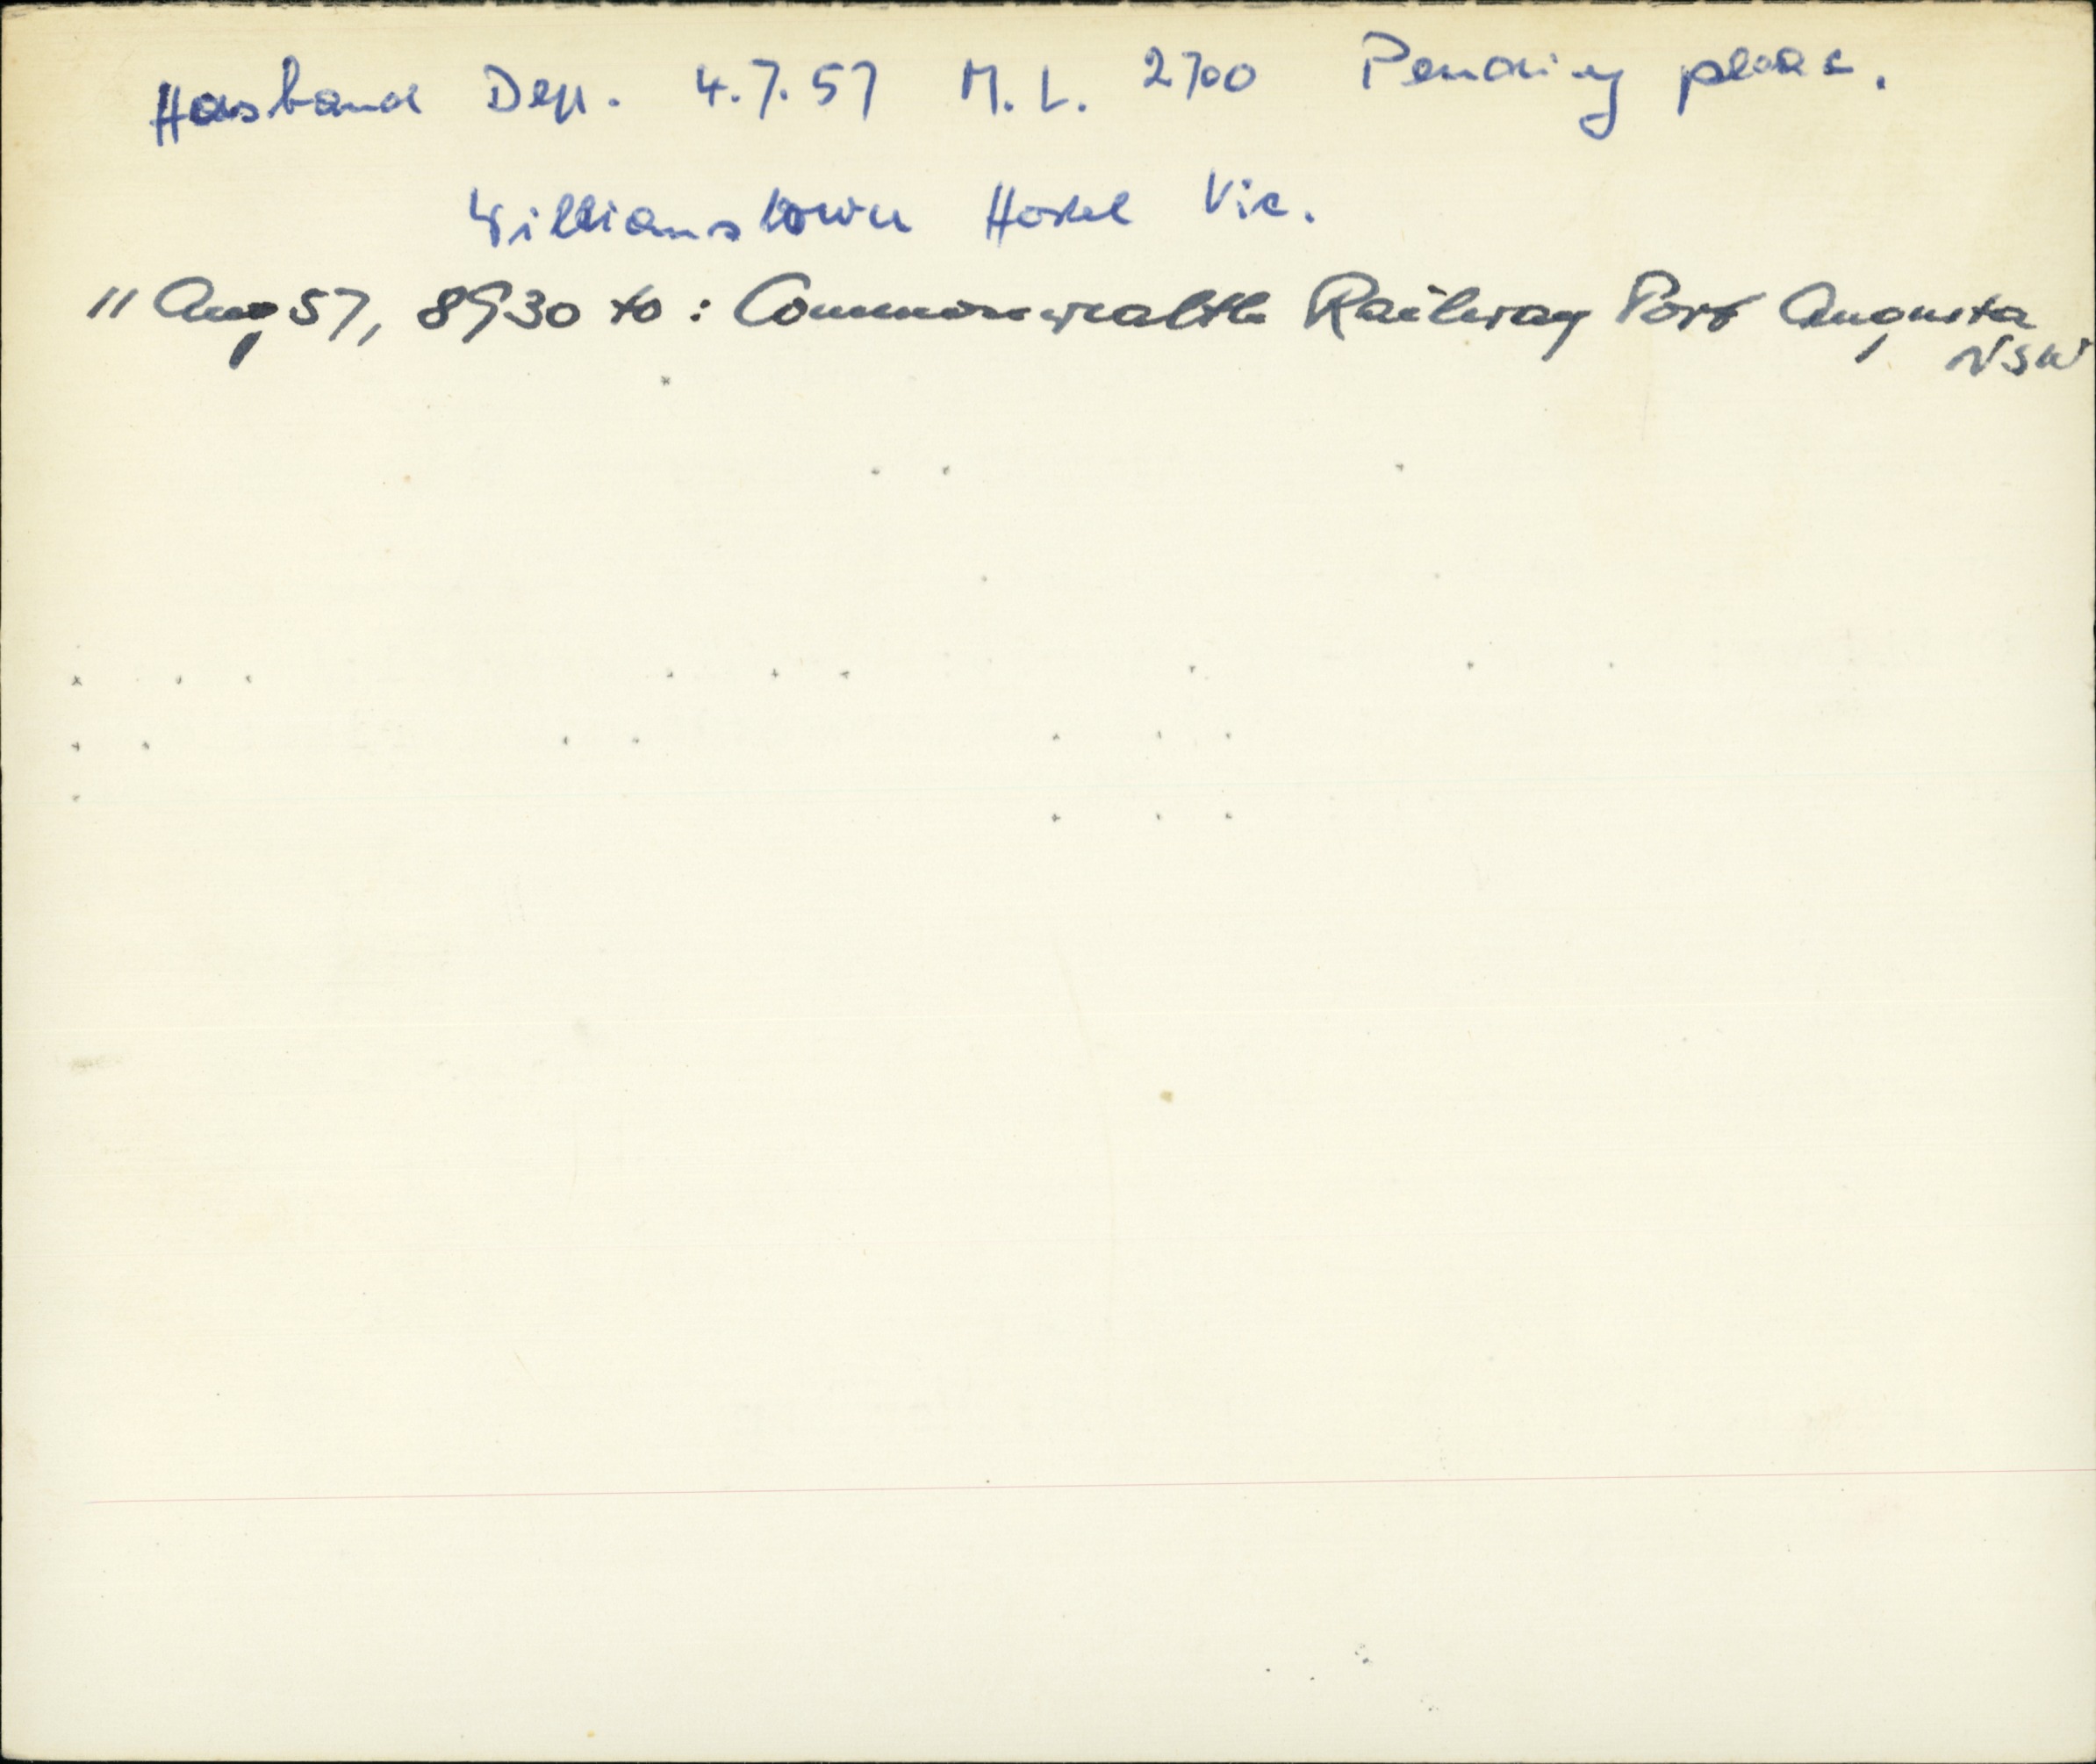 Husband Dep. 4.7.57 M.L. 2700 Pending plac.
Williamstown Hostel Vic.
11 Aug 57, 8930 to: Commonwealth Railway Port Augusta
NSW